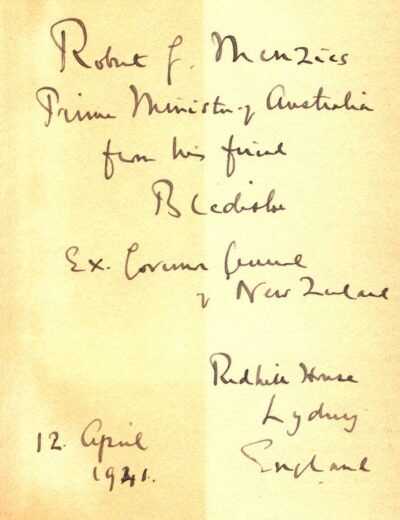 Robert G. Menzies
Prime Minister of Australia
from his friend
Bledisloe
Ex. Governor General
of New Zealand
Redhill House
Lydney
England
12. April
1941.